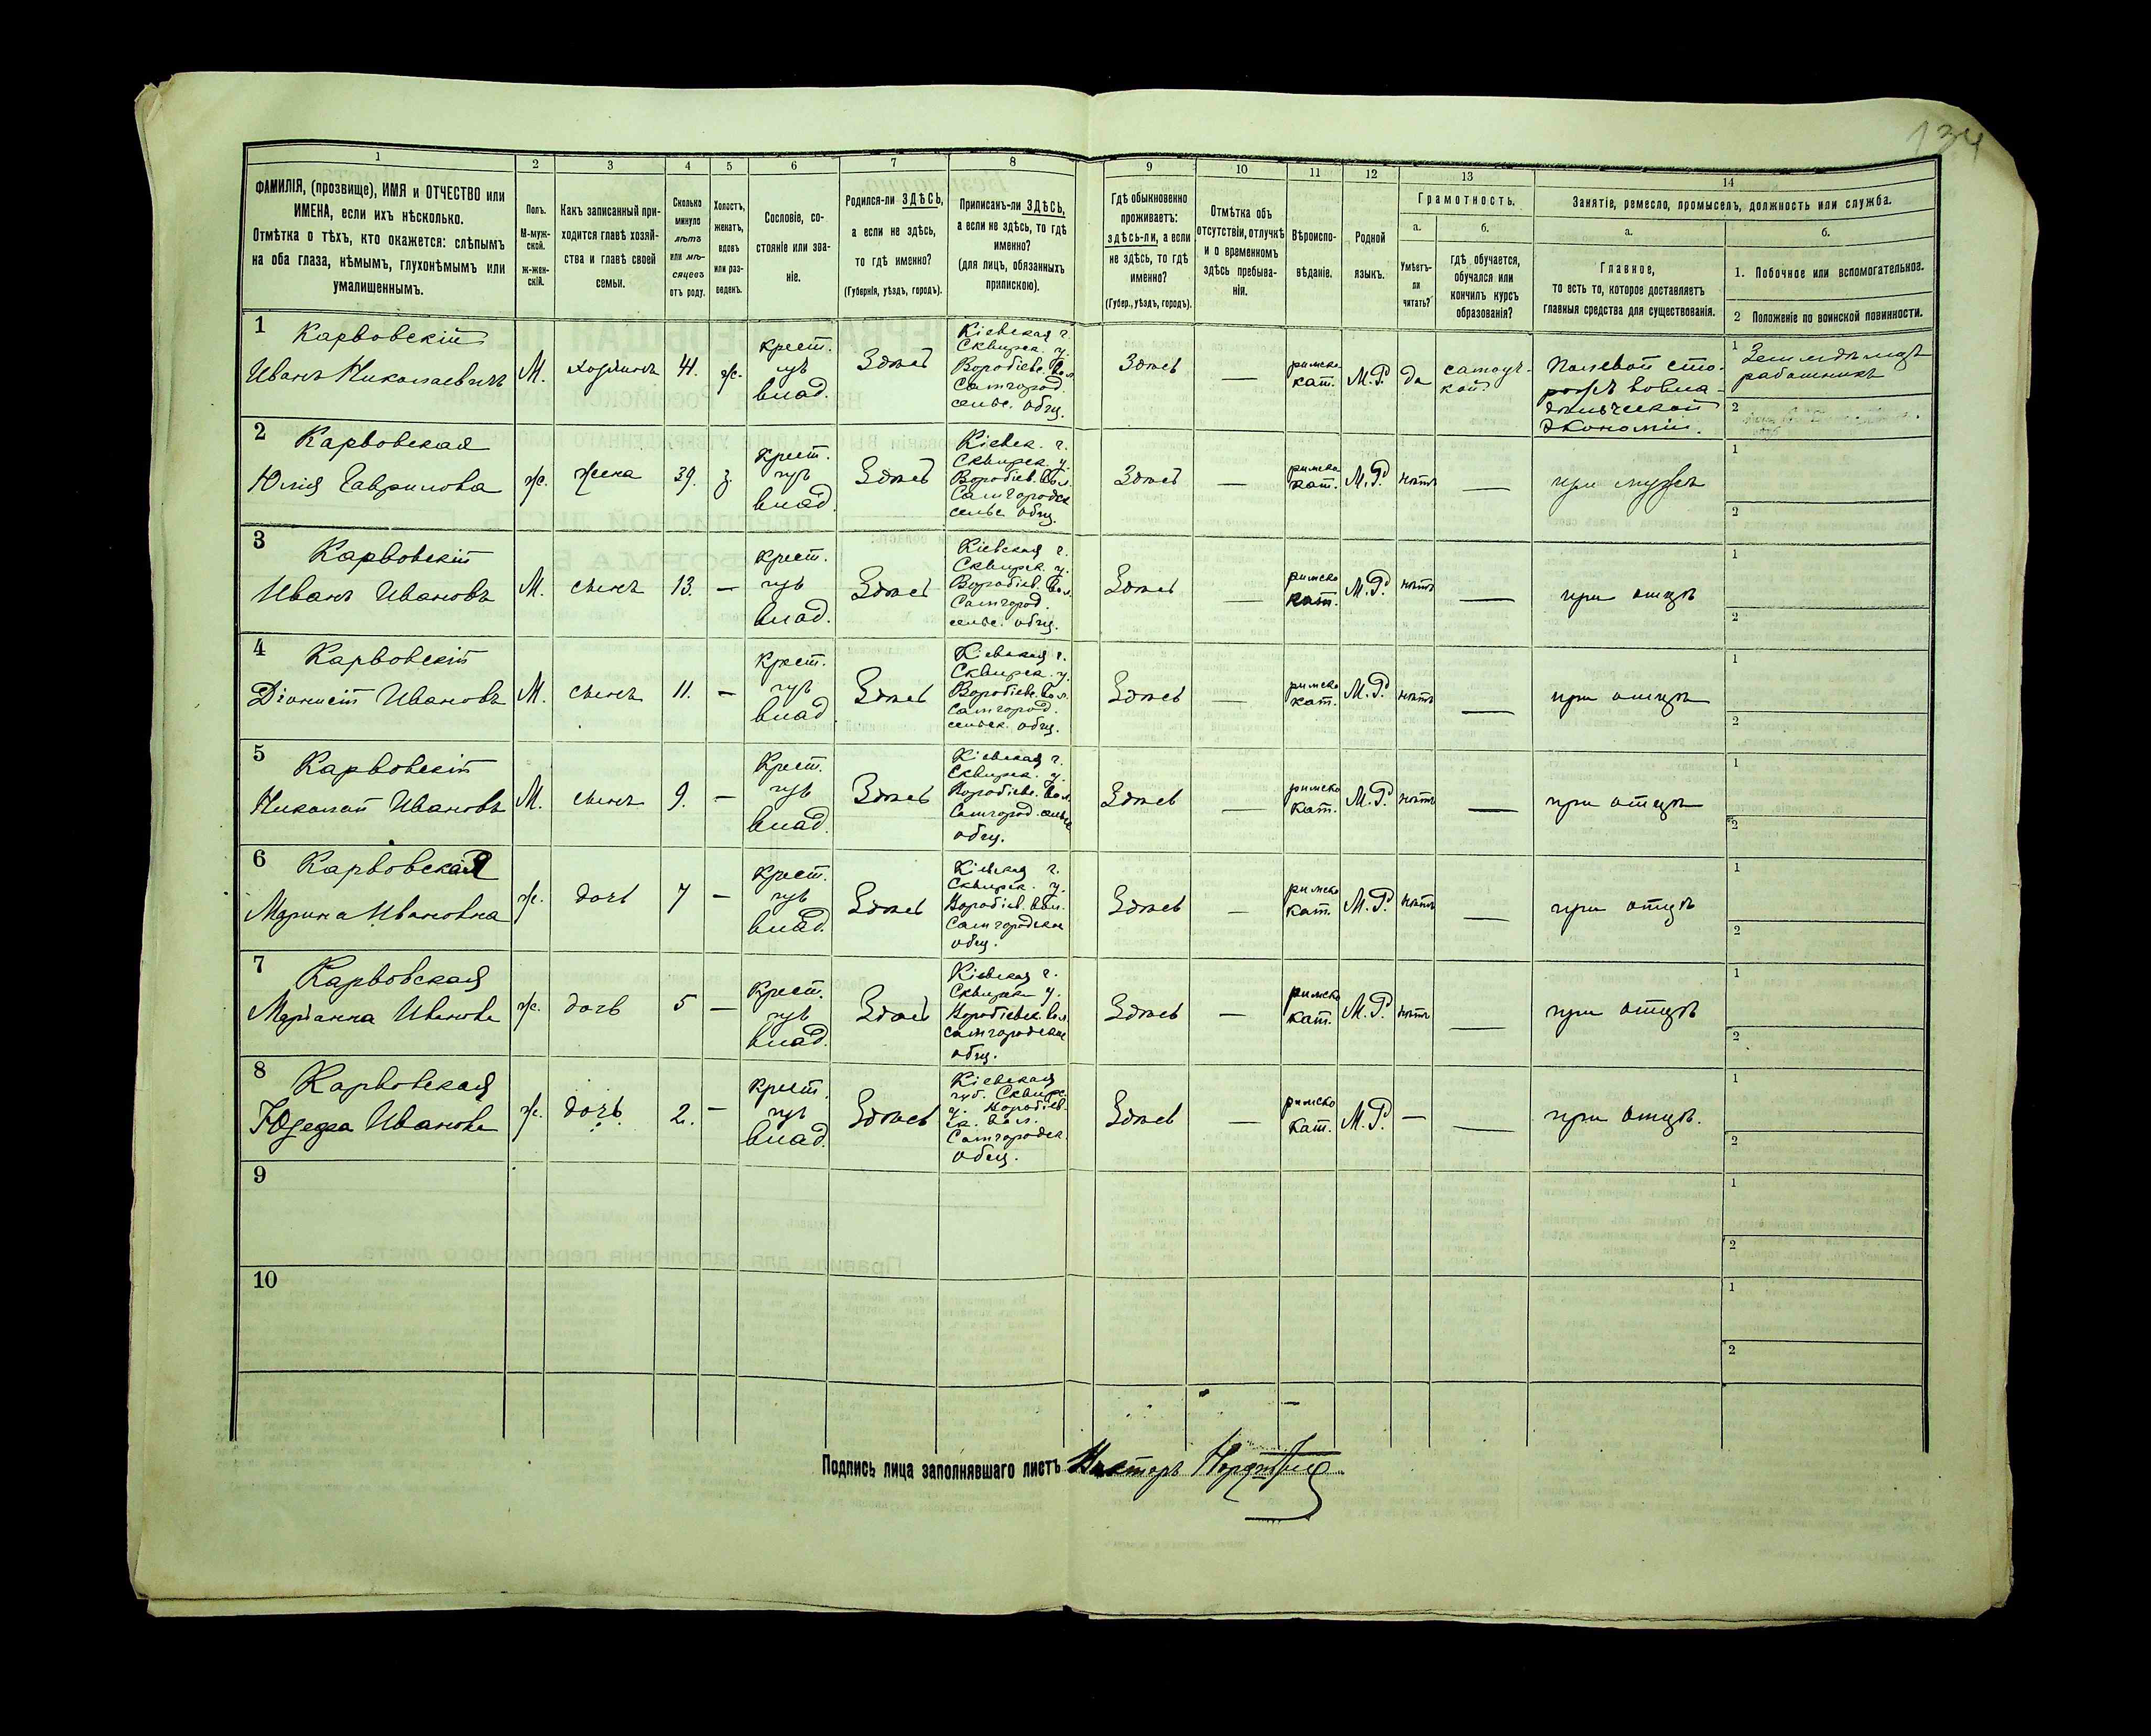 134
1
2
3
4
5
6
7
8
9
10
11
12
13
14
ФАМИЛІЯ, (прозвище), ИМЯ и ОТЧЕСТВО или
ИМЕНА, если ихъ нѣсколько.
Отмѣтка о тѣхъ, кто окажется: слѣпымъ
на оба глаза, нѣмымъ, глухонѣмымъ или
умалишеннымъ.
Полъ.
М-муж-
ской.
ж-жен-
скій.
Какъ записанный при-
ходится главѣ хозяй-
ства и главѣ своей
семьи.
Сколько
минуло
лѣтъ
или мѣ-
сяцевъ
отъ роду.
Холостъ,
женатъ,
вдовъ
или раз-
веденъ.
Сословіе, со-
стояніе или зва-
ніе.
Родился-ли ЗДѢСЬ,
а если не здѣсь,
то гдѣ именно?
(Губернія, уѣздъ, городъ).
Приписанъ-ли ЗДѢСЬ,
а если не здѣсь, то гдѣ
именно?
(для лицъ, обязанныхъ
припискою).
Гдѣ обыкновенно
проживаетъ:
здѣсь-ли, а если
не здѣсь, то гдѣ
именно?
(Губер., уѣздъ, городъ).
Отмѣтка объ
отсутствіи, отлучкѣ
и о временномъ
здѣсь пребыва-
ніи.
Вѣроиспо-
вѣданіе.
Родной
языкъ.
Грамотность.
а.
Умѣетъ-
ли
читать?
б.
гдѣ обучается,
обучался или
кончилъ курсъ
образованія?
Занятіе, ремесло, промыселъ, должность или служба.
а.
Главное,
то есть то, которое доставляетъ
главныя средства для существованія.
б.
1. Побочное или вспомогательное.
2 Положеніе по воинской повинности.
1
Карвовскій
Иванъ Николаевичъ
М.
хозяинъ
41.
ж.
крест.
изъ
влад.
Здѣсь
Кіевская г.
Сквирск. у.
Воробіевс. вол.
Самгород.
сельс. общ.
Здѣсь
—
римско
кат.
М.Р.
да
самоуч-
кой
Полевой сто-
рожъ во вла-
дѣльческой
экономіи.
1 Земледѣлецъ
работникъ
2
2
Карвовская
Юлія Гаврилова
ж.
жена
39.
з.
крест.
изъ
влад.
Здѣсь
Кіевск. г.
Сквирск. у.
Воробіев. вол.
Самгородск
сельс общ.
Здѣсь
—
римско
кат.
М.Р.
нѣтъ
—
при мужѣ
1
2
3
Карвовскій
Иванъ Ивановъ
М.
сынъ
13.
—
крест.
изъ
влад.
Здѣсь
Кіевская г.
Сквирск. у.
Воробіев. вол.
Самгород.
сельс. общ.
Здѣсь
—
римско
кат.
М.Р.
нѣтъ
—
при отцѣ
1
2
4
Карвовскій
Діонисій Ивановъ
М.
сынъ
11.
—
крест.
изъ
влад
Здѣсь
Кіевская г.
Сквирск. у.
Воробіевс. вол.
Самгород.
сельск. общ.
Здѣсь
—
римско
кат.
М.Р.
нѣтъ
—
при отцѣ
1
2
5
Карвовскій
Николай Ивановъ
М.
сынъ
9.
—
крест.
изъ
влад.
Здѣсь
Кіевская г.
Сквирск. у.
Воробіевс. вол.
Самгород. сельск
общ.
Здѣсь
—
римско
кат.
М.Р.
нѣтъ
—
при отцѣ
1
2
6
Карвовская
Марина Ивановна
ж.
дочь
7
—
крест.
изъ
влад.
Здѣсь
Кіевская г.
Сквирск. у.
Воробіев. вол.
Самгородская
общ.
Здѣсь
—
римско
кат.
М.Р.
нѣтъ
—
при отцѣ
1
2
7
Карвовская
Маріанна Иванова
ж.
дочь
5
—
крест.
изъ
влад.
Здѣсь
Кіевская г.
Сквирск у.
Воробіевск. вол.
Самгородское
общ.
Здѣсь
—
римско
кат.
М.Р.
нѣтъ
—
при отцѣ
1
2
8
Карвовская
Юзефа Иванова
ж.
дочь
2.
—
крест.
изъ
влад.
Здѣсь
Кіевская
губ. Сквирс.
у. Воробіев-
ск. вол.
Самгородск.
общ.
Здѣсь
—
римско
кат.
М.Р.
—
—
при отцѣ.
1
2
9
1
2
10
1
2
Подпись лица заполнявшаго листъ